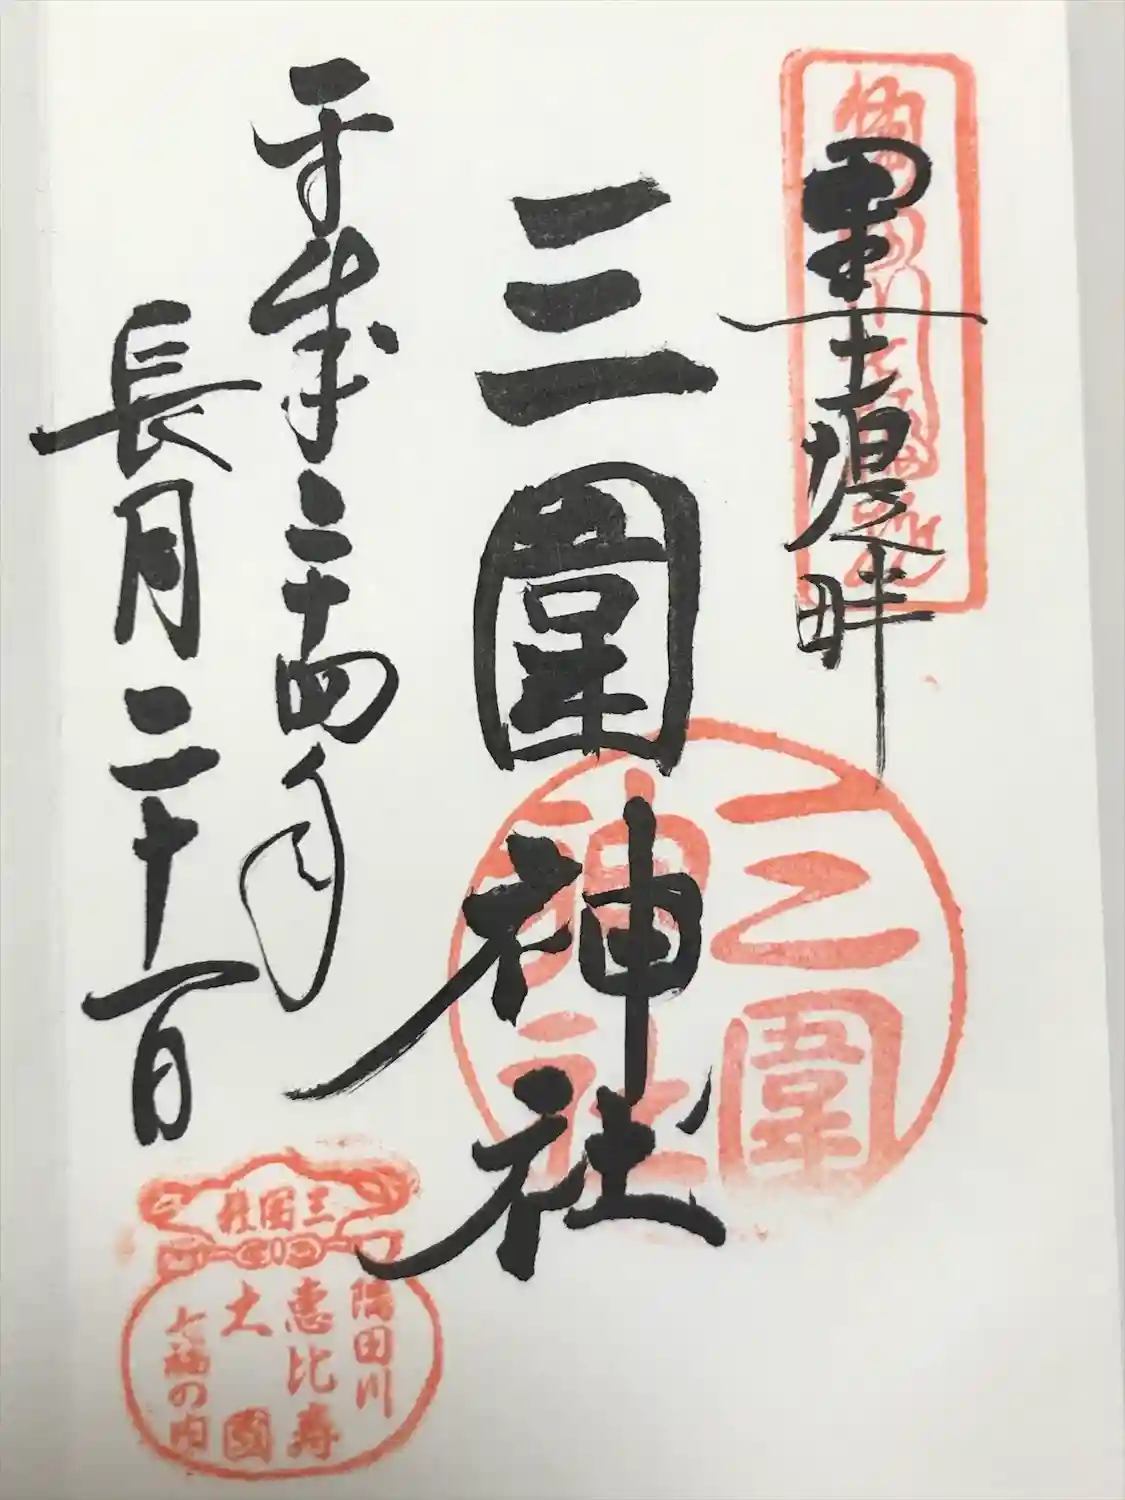 墨堤畔
三囲神社
平成二十四年
長月二十一日
三囲神社
三囲社
隅田川
恵比寿
大國
七福の内